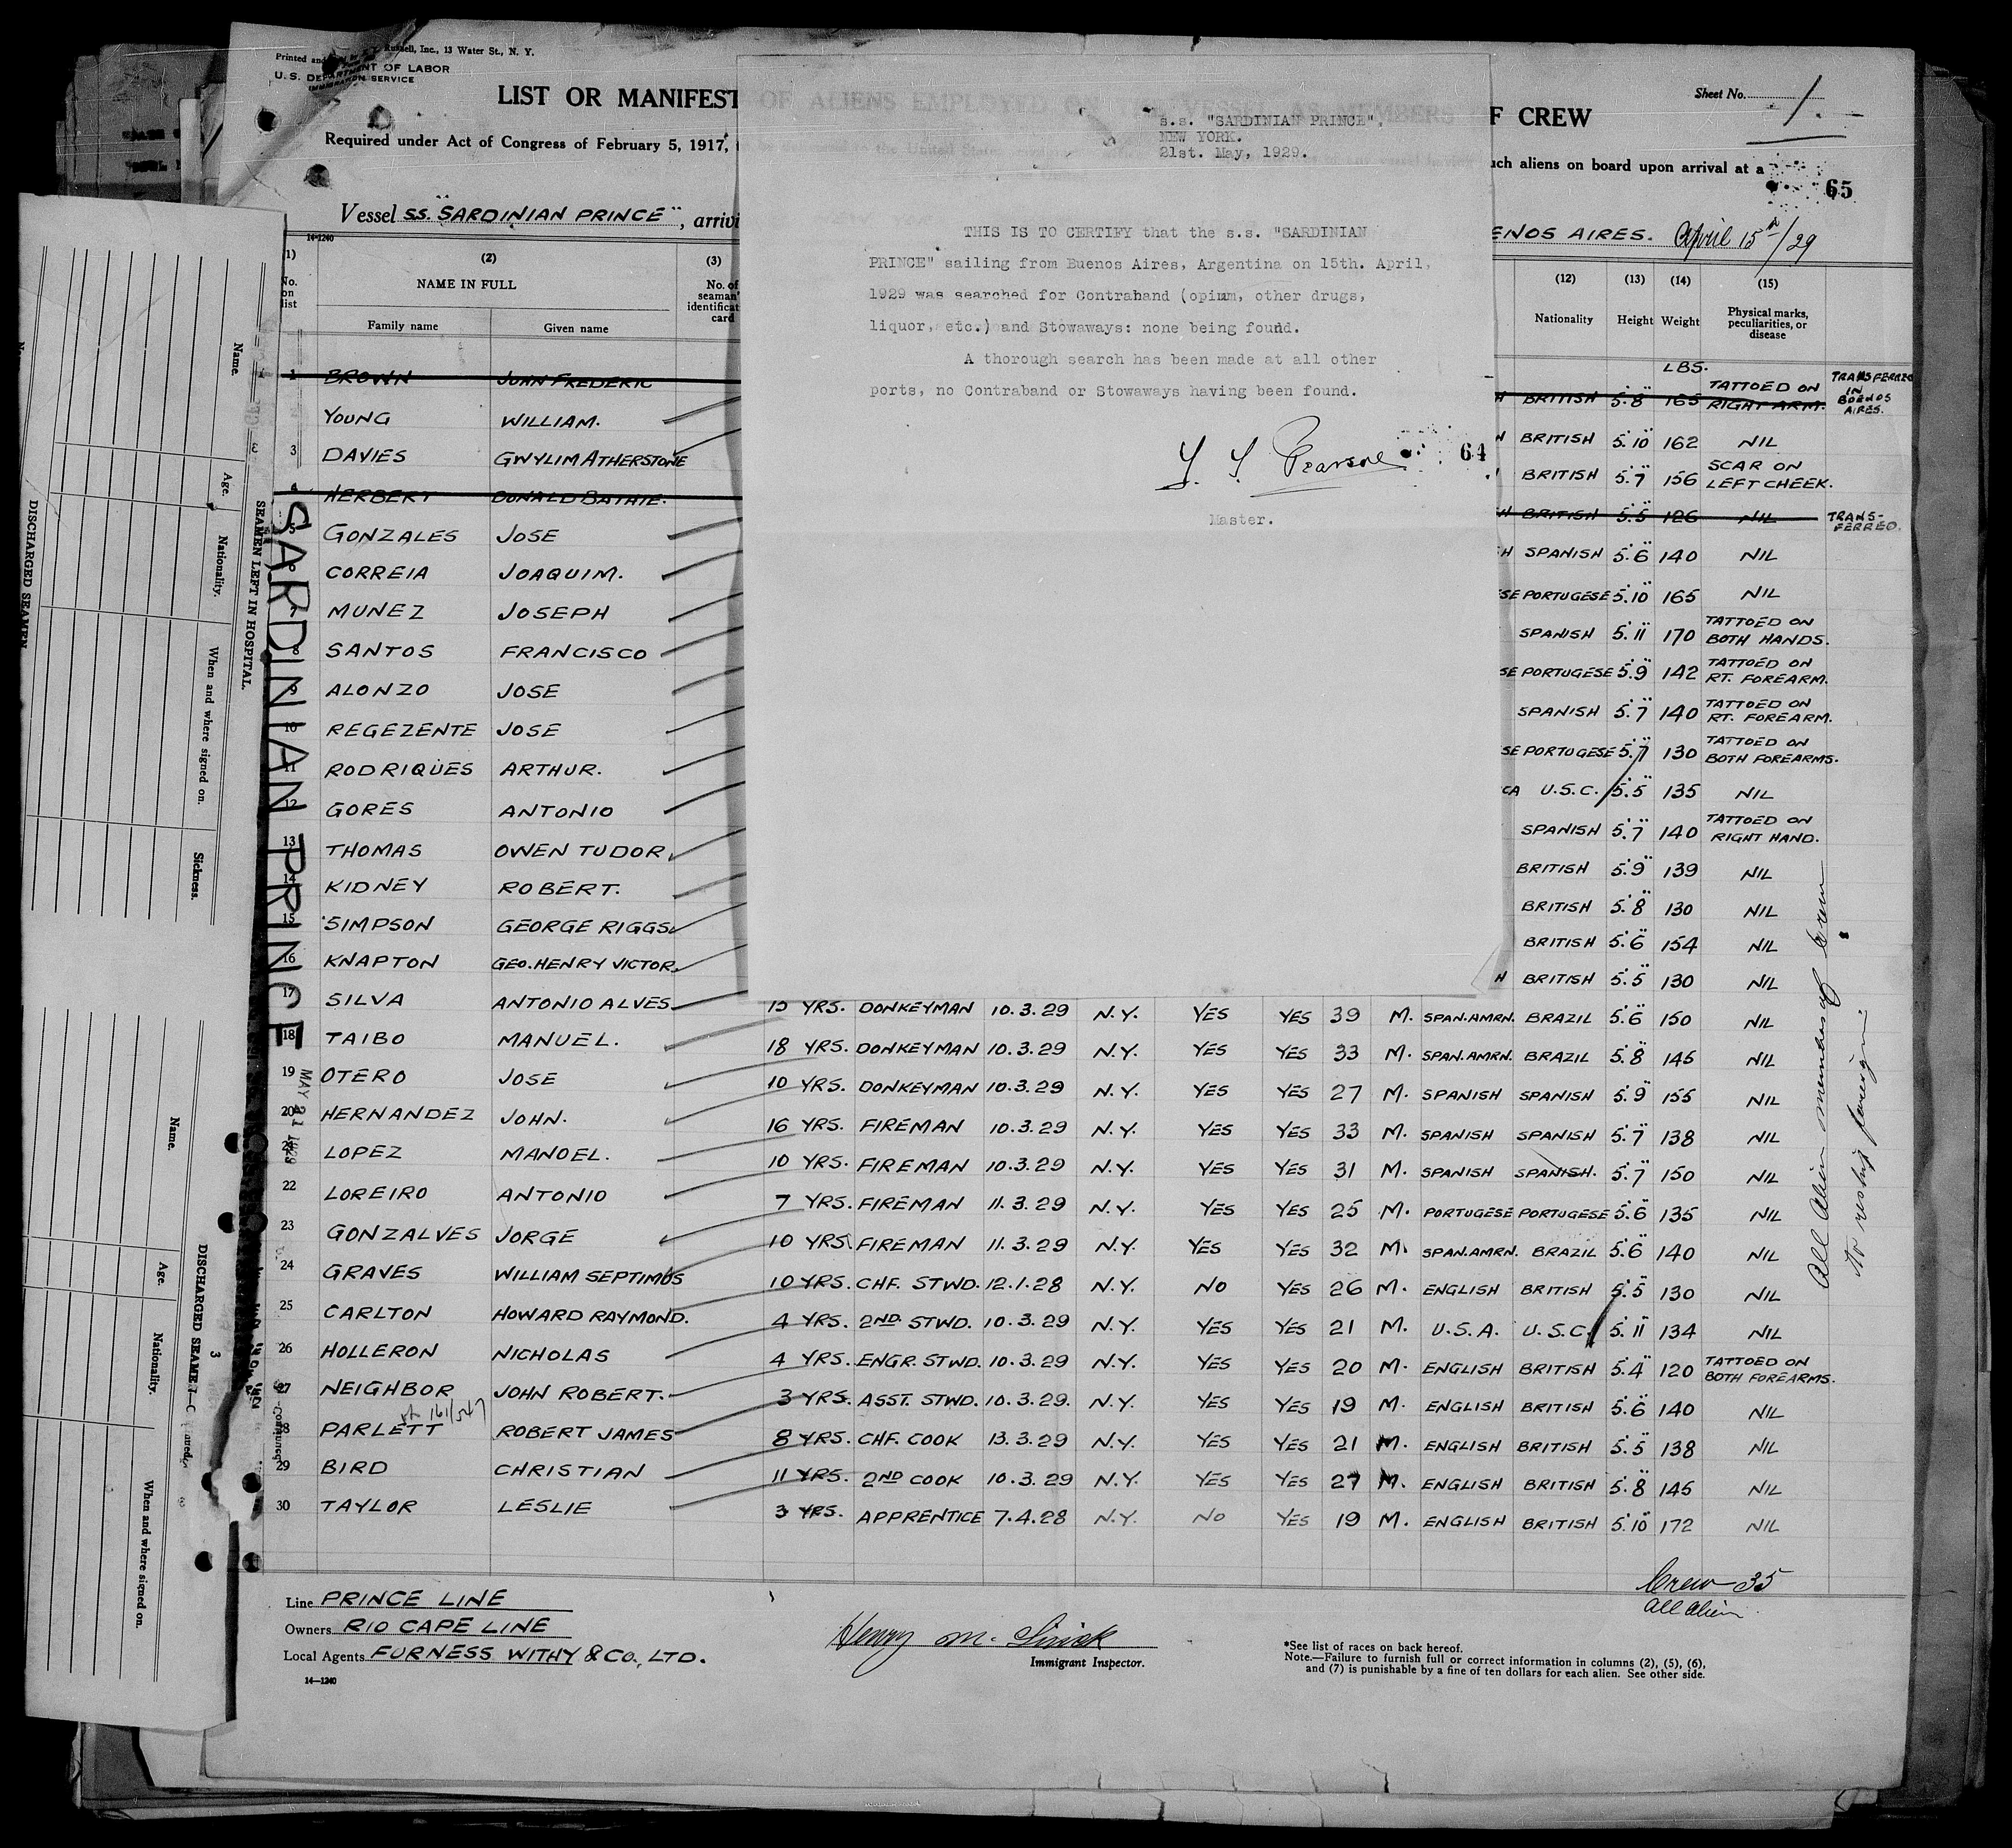 Printed and Russell, Inc., 13 Water St., N. Y.
U. S. DEPARTMENT OF LABOR
IMMIGRATION SERVICE
Sheet No. 1.
LIST OR MANIFEST OF ALIENS EMPLOYED ON VESSEL AS MEMBERS OF CREW
Required under Act of Congress of February 5, 1917,
such aliens on board upon arrival at a
65
Vessel SS. "SARDINIAN PRINCE", arrivi
ENOS AIRES. April 15th/29
s.s. "SARDINIAN PRINCE",
NEW YORK.
21st. May, 1929.
THIS IS TO CERTIFY that the s.s. "SARDINIAN
PRINCE" sailing from Buenos Aires, Argentina on 15th. April,
1929 was searched for Contraband (opium, other drugs,
liquor, etc.) and Stowaways: none being found.
A thorough search has been made at all other
ports, no Contraband or Stowaways having been found.
Pearson
64
Master.
14-1240
(1) (2) (3) (12) (13) (14) (15)
No. on list NAME IN FULL No. of seaman's identification card Nationality Height Weight Physical marks, peculiarities, or disease
Family name Given name
LBS.
1 BROWN JOHN FREDERIC BRITISH 5.8 165 TATTOED ON RIGHT ARM. TRANSFERRED IN BUENOS AIRES.
YOUNG WILLIAM. BRITISH 5.10 162 NIL
3 DAVIES GWYLIM ATHERSTONE BRITISH 5.7 156 SCAR ON LEFT CHEEK.
4 HERBERT DONALD BATHIE. BRITISH 5.5 126 NIL TRANS-FERRED.
5 GONZALES JOSE SPANISH 5.6 140 NIL
6 CORREIA JOAQUIM. PORTUGESE 5.10 165 NIL
7 MUNEZ JOSEPH SPANISH 5.11 170 TATTOED ON BOTH HANDS.
8 SANTOS FRANCISCO PORTUGESE 5.9 142 TATTOED ON RT. FOREARM.
9 ALONZO JOSE SPANISH 5.7 140 TATTOED ON RT. FOREARM.
10 REGEZENTE JOSE PORTUGESE 5.7 130 TATTOED ON BOTH FOREARMS.
11 RODRIQUES ARTHUR. CA U.S.C. 5.5 135 NIL
12 GORES ANTONIO SPANISH 5.7 140 TATTOED ON RIGHT HAND.
13 THOMAS OWEN TUDOR. BRITISH 5.9 139 NIL
14 KIDNEY ROBERT. BRITISH 5.8 130 NIL
15 SIMPSON GEORGE RIGGS. BRITISH 5.6 154 NIL
16 KNAPTON GEO. HENRY VICTOR. BRITISH 5.5 130 NIL
17 SILVA ANTONIO ALVES. 15 YRS. DONKEYMAN 10.3.29 N.Y. YES YES 39 M. SPAN. AMRN. BRAZIL 5.6 150 NIL
18 TAIBO MANUEL. 18 YRS. DONKEYMAN 10.3.29 N.Y. YES YES 33 M. SPAN. AMRN. BRAZIL 5.8 145 NIL
19 OTERO JOSE 10 YRS. DONKEYMAN 10.3.29 N.Y. YES YES 27 M. SPANISH SPANISH 5.9 155 NIL
20 HERNANDEZ JOHN. 16 YRS. FIREMAN 10.3.29 N.Y. YES YES 33 M. SPANISH SPANISH 5.7 138 NIL
21 LOPEZ MANOEL. 10 YRS. FIREMAN 10.3.29 N.Y. YES YES 31 M. SPANISH SPANISH. 5.7 150 NIL
22 LOREIRO ANTONIO 7 YRS. FIREMAN 11.3.29 N.Y. YES YES 25 M. PORTUGESE PORTUGESE 5.6 135 NIL
23 GONZALVES JORGE 10 YRS. FIREMAN 11.3.29 N.Y. YES YES 32 M. SPAN. AMRN. BRAZIL 5.6 140 NIL
24 GRAVES WILLIAM SEPTIMUS 10 YRS. CHF. STWD. 12.1.28 N.Y. NO YES 26 M. ENGLISH BRITISH 5.5 130 NIL
25 CARLTON HOWARD RAYMOND. 4 YRS. 2ND. STWD. 10.3.29 N.Y. YES YES 21 M. U.S.A. U.S.C. 5.11 134 NIL
26 HOLLERON NICHOLAS 4 YRS. ENGR. STWD. 10.3.29 N.Y. YES YES 20 M. ENGLISH BRITISH 5.4 120 TATTOED ON BOTH FOREARMS.
27 NEIGHBOR JOHN ROBERT. 3 YRS. ASST. STWD. 10.3.29. N.Y. YES YES 19 M. ENGLISH BRITISH 5.6 140 NIL
28 PARLETT ROBERT JAMES 8 YRS. CHF. COOK 13.3.29 N.Y. YES YES 21 M. ENGLISH BRITISH 5.5 138 NIL
29 BIRD CHRISTIAN 11 YRS. 2ND COOK 10.3.29 N.Y. YES YES 27 M. ENGLISH BRITISH 5.8 145 NIL
30 TAYLOR LESLIE 3 YRS. APPRENTICE 7.4.28 N.Y. NO YES 19 M. ENGLISH BRITISH 5.10 172 NIL
All Alien members of Crew
to reship foreign
Crew 35
all alien
Line PRINCE LINE
Owners RIO CAPE LINE
Local Agents FURNESS WITHY & CO., LTD.
14-1240
Henry M.
Immigrant Inspector.
*See list of races on back hereof.
Note.—Failure to furnish full or correct information in columns (2), (5), (6),
and (7) is punishable by a fine of ten dollars for each alien. See other side.
SARDINIAN PRINCE
MAY 21 1929
SEAMEN LEFT IN HOSPITAL.
Name. Age. Nationality. When and where signed on. Sickness.
DISCHARGED SEAMEN
3
DISCHARGED SEAMEN—C
Name. Age. Nationality. When and where signed on.